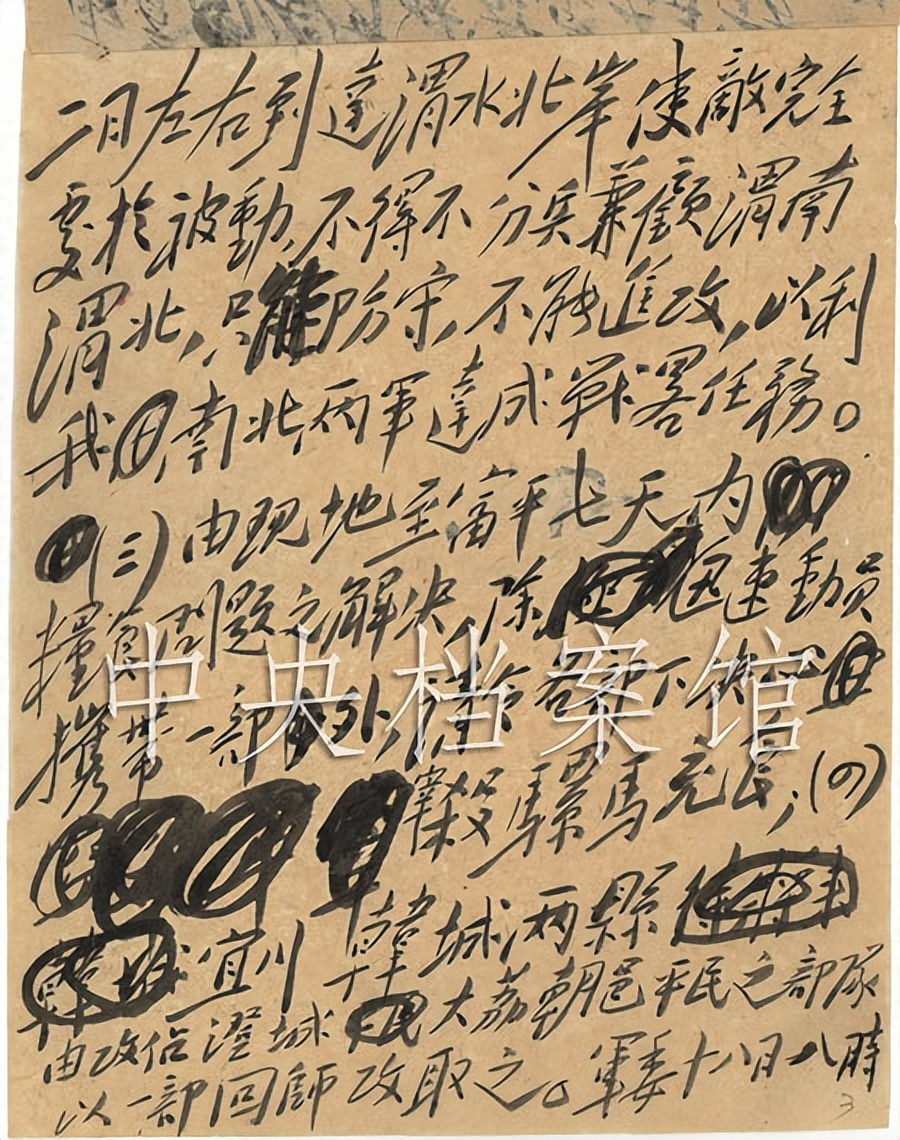 二日左右到達渭水北岸使敵完全
處於被動,不得不分兵兼顧渭南
渭北,只能防守,不能進攻,以利
我南北两軍達成戰畧任務。
(三)由現地至富平七天内
糧食問題之解決,除迅速動員
攜帶一部外,
中央档案馆
宰殺騾馬充食;(四)
宜川韓城两縣
由攻佔澄城大荔朝邑平民之部隊
以一部回師攻取之。軍委十八日八時
3